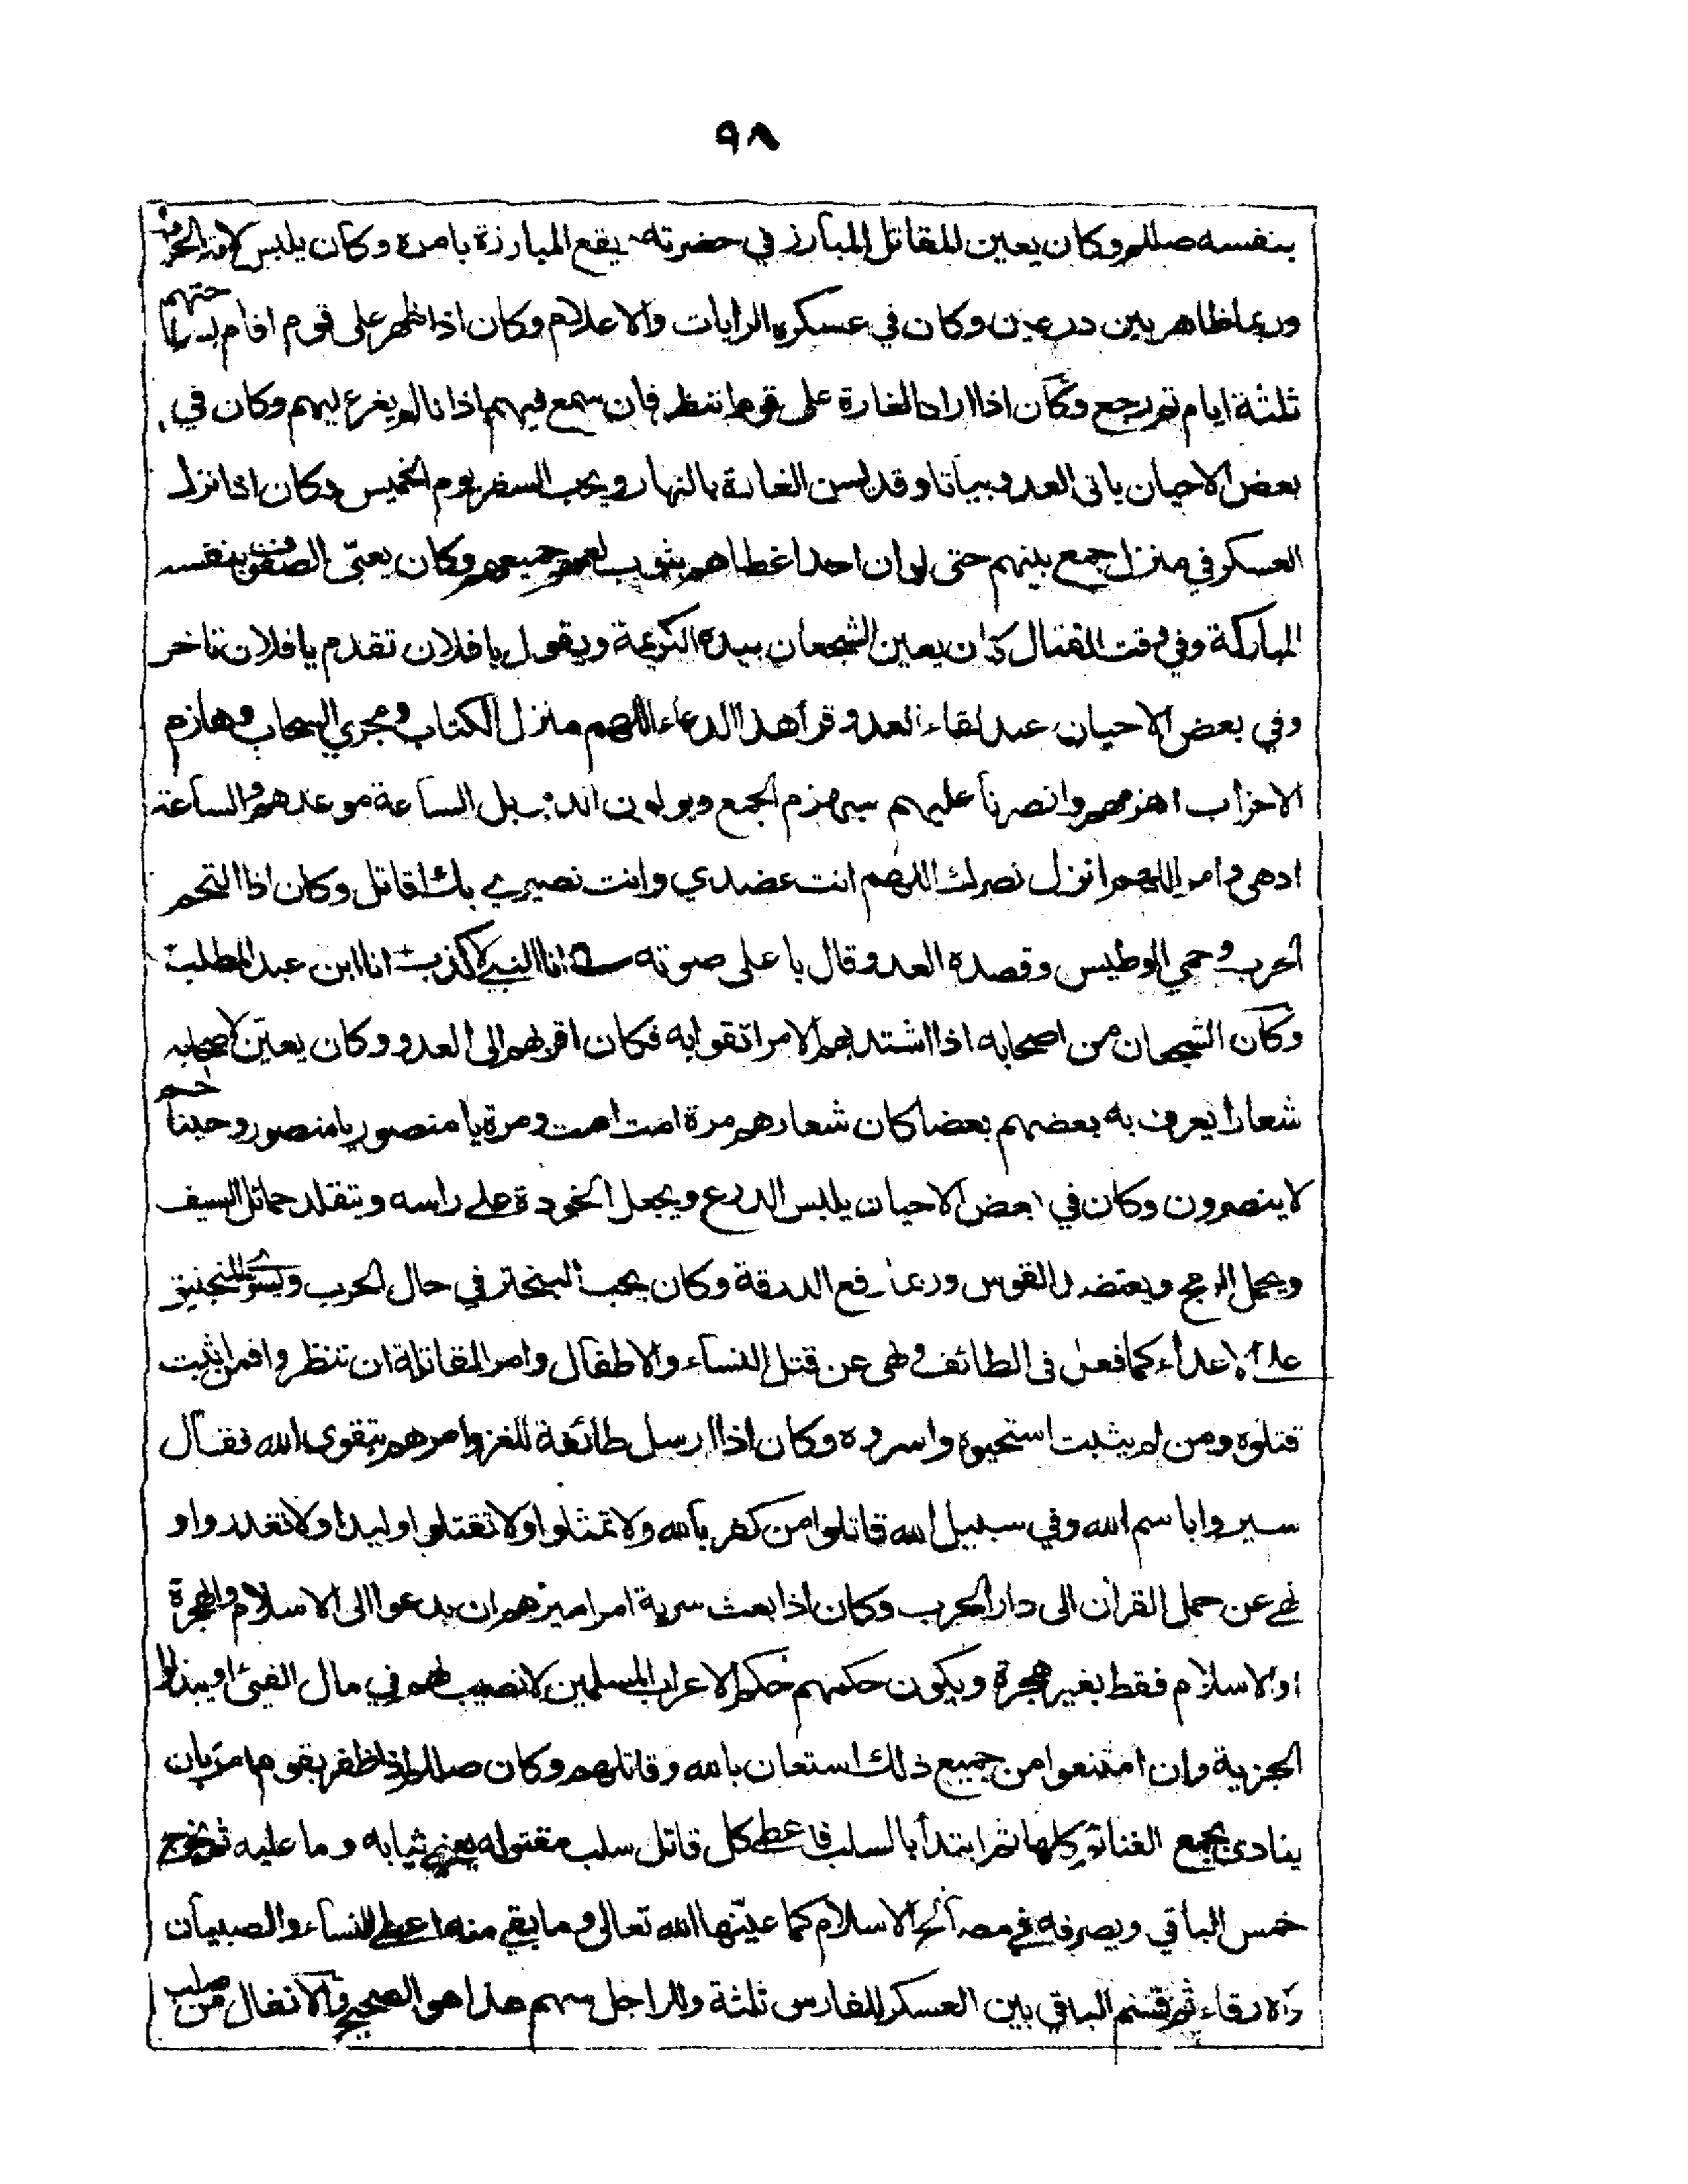 ٩٨
بنفسه صللم وكان يعين للمقاتل المبارز في حضرته يقع المبارزة بامره وكان يلبس لامة الحرب
وربما ظاهر بين درعين وكان في عسكره الرايات والاعلام وكان اذا ظهر على قوم اقام بساحتهم
ثلثة ايام ثم رجع وكان اذا اراد الغارة على قوم انتظر فان سمع فيهم اذانا لم يغر عليهم وكان في
بعض الاحيان ياتى العدو بياتا وقد يسن الغارة بالنهار ويحب السفر يوم الخميس وكان اذا نزل
العسكر في منزل جمع بينهم حتى لو ان احدا غطاهم بثوب لعم جميعهم وكان يعبّى الصفوف بنفسه
المباركة وفي وقت القتال كان يعين الشجعان بيده الكريمة ويقول يا فلان تقدم يا فلان تاخر
وفي بعض الاحيان عند لقاء العدو قرأ هذا الدعاء اللهم منزل الكتاب ومجري السحاب وهازم
الاحزاب اهزمهم وانصرنا عليهم سيهزم الجمع ويولون الدبر بل الساعة موعدهم والساعة
ادهى وامر اللهم انزل نصرك اللهم انت عضدي وانت نصيري بك اقاتل وكان اذا التحم
الحرب وحمي الوطيس وقصده العدو قال با على صوته انا النبي لا كذب انا ابن عبد المطلب
وكان الشجعان من اصحابه اذا اشتد بهم الامر اتقوا به فكان اقربهم الى العدو وكان يعيّن لاصحابه
شعارا يعرف به بعضهم بعضا كان شعارهم مرة امت امت ومرة يا منصور يا منصور وحينا حم
لا ينصرون وكان في بعض الاحيان يلبس الدرع ويجعل الخودة على راسه ويتقلد حمائل السيف
ويحمل الرمح ويعتضد القوس وربما رفع الدرقة وكان يحب التبختر في حال الحرب المنجنيق
على الاعداء كما فعل فى الطائف ونهى عن قتل النساء والاطفال وامر المقاتلة ان تنظروا فمن انبت
قتلوه ومن لم يثبت استحيوه واسروه وكان اذا ارسل طائفة للغزو امرهم بتقوى الله فقال
سيروا باسم الله وفي سبيل الله قاتلوا من كفر بالله ولا تمثلوا ولا تقتلوا وليدا ولا تغدروا و
نهى عن حمل القرآن الى دار الحرب وكان اذا بعث سرية امر اميرهم ان يدعوا الى الاسلام والهجرة
او الاسلام فقط بغير هجرة ويكون حكمهم حكم الاعراب المسلمين لا نصيب لهم في مال الفئ او يبذلوا
الجزية وان امتنعوا من جميع ذلك استعان بالله وقاتلهم وكان صللم اذا ظفر بقوم امر بان
ينادى بجمع الغنائم كلها ثم ابتدأ بالسلب فاعطى كل قاتل سلب مقتوله يعني ثيابه وما عليه ثم يخرج
خمس الباقي ويصرفه في مصالح الاسلام كما عيّنها الله تعالى وما بقي منه اعطى للنساء والصبيان
والارقاء ثم قسم الباقي بين العسكر للفارس ثلثة وللراجل سهم هذا هو الصحيح والانفال من صلب